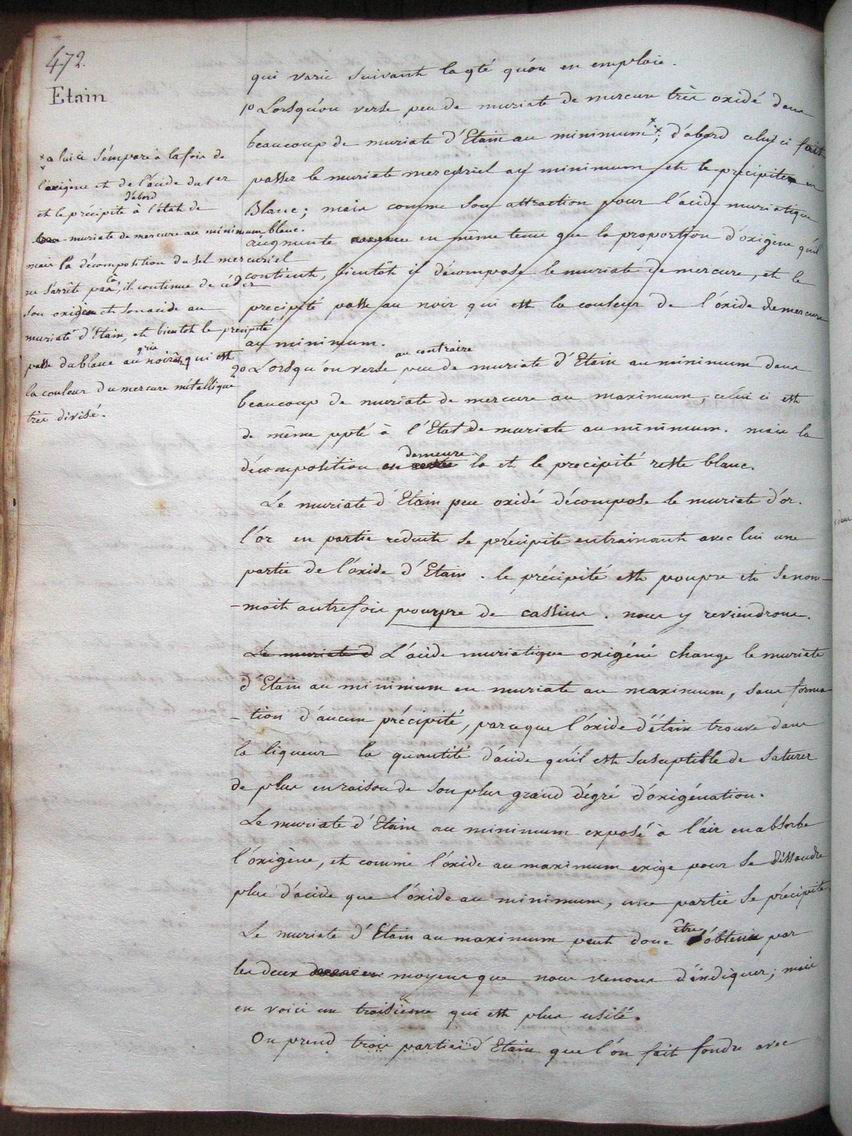 472.
Etain
qui varie suivant la qté qu'on en emploie.
1o Lorsqu'on verse peu de muriate de mercure très oxidé dans
beaucoup de muriate d'Etain au minimum x; d'abord celui ci fait
passer le muriate mercuriel au minimum et le précipite en
Blanc; mais comme son attraction pour l'acide muriatique
augmente en même tems que la proportion d'oxigène qu'il
contient, bientôt il décompose le muriate de mercure, et le
précipité passe au noir qui est la couleur de l'oxide de mercure
au minimum.
x a lui ci s'empare à la fois de
l'oxigène et de l'acide du 1er
et le précipite d'abord à l'état de
muriate de mercure au minimum blanc.
mais la décomposition du sel mercuriel
ne s'arrête pas là, il continue de céder
son oxigène et son acide au
muriate d'Etain, et bientôt le précipité
passe du blanc au gris noirâtre, qui est
la couleur du mercure métallique
très divisé.
2o Lorsqu'on verse au contraire peu de muriate d'Etain au minimum dans
beaucoup de muriate de mercure au maximum, celui ci est
de même ppté à l'Etat de muriate au minimum. mais la
décomposition en reste demeure là et le précipité reste blanc.
Le muriate d'Etain peu oxidé décompose le muriate d'or.
l'or en partie réduit se précipite entrainant avec lui une
partie de l'oxide d'Etain. le précipité est pourpre et se nom-
-moit autrefois pourpre de cassius. nous y reviendrons.
Le muriate d L'acide muriatique oxigéné change le muriate
d'Etain au minimum en muriate au maximum, sans forma
-tion d'aucun précipité, parceque l'oxide d'étain trouve dans
la liqueur la quantité d'acide qu'il est susceptible de saturer
de plus en raison de son plus grand dégré d'oxigénation.
Le muriate d'Etain au minimum exposé à l'air en absorbe
l'oxigène, et comme l'oxide au maximum exige pour se dissoudre
plus d'acide que l'oxide au minimum, une partie se précipite.
Le muriate d'Etain au maximum peut donc être obtenu par
les deux moyens que nous venons d'indiquer; mais
en voici un troisième qui est plus usité.
On prend trois parties d'Etain que l'on fait fondre avec